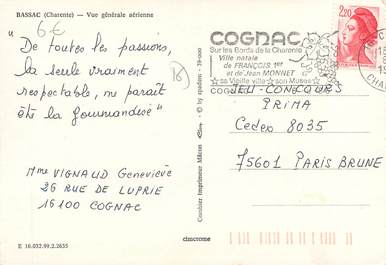 BASSAC (Charente) — Vue générale aérienne
6€
"De toutes les passions,
la seule vraiment
respectable, me paraît
être la gourmandise"
16
Mme VIGNAUD Geneviève
26 RUE DE LUPRIE
16100 COGNAC
E 16.032.99.2.2635
Combier Imprimeur Mâcon
© by spadem
cimcrome
COGNAC
Sur les Bords de la Charente
Ville natale
de FRANÇOIS 1er
et de Jean MONNET
sa Vieille ville son Musée
2,20
JEU-CONCOURS
PRIMA
Cedex 8035
75601 PARIS BRUNE